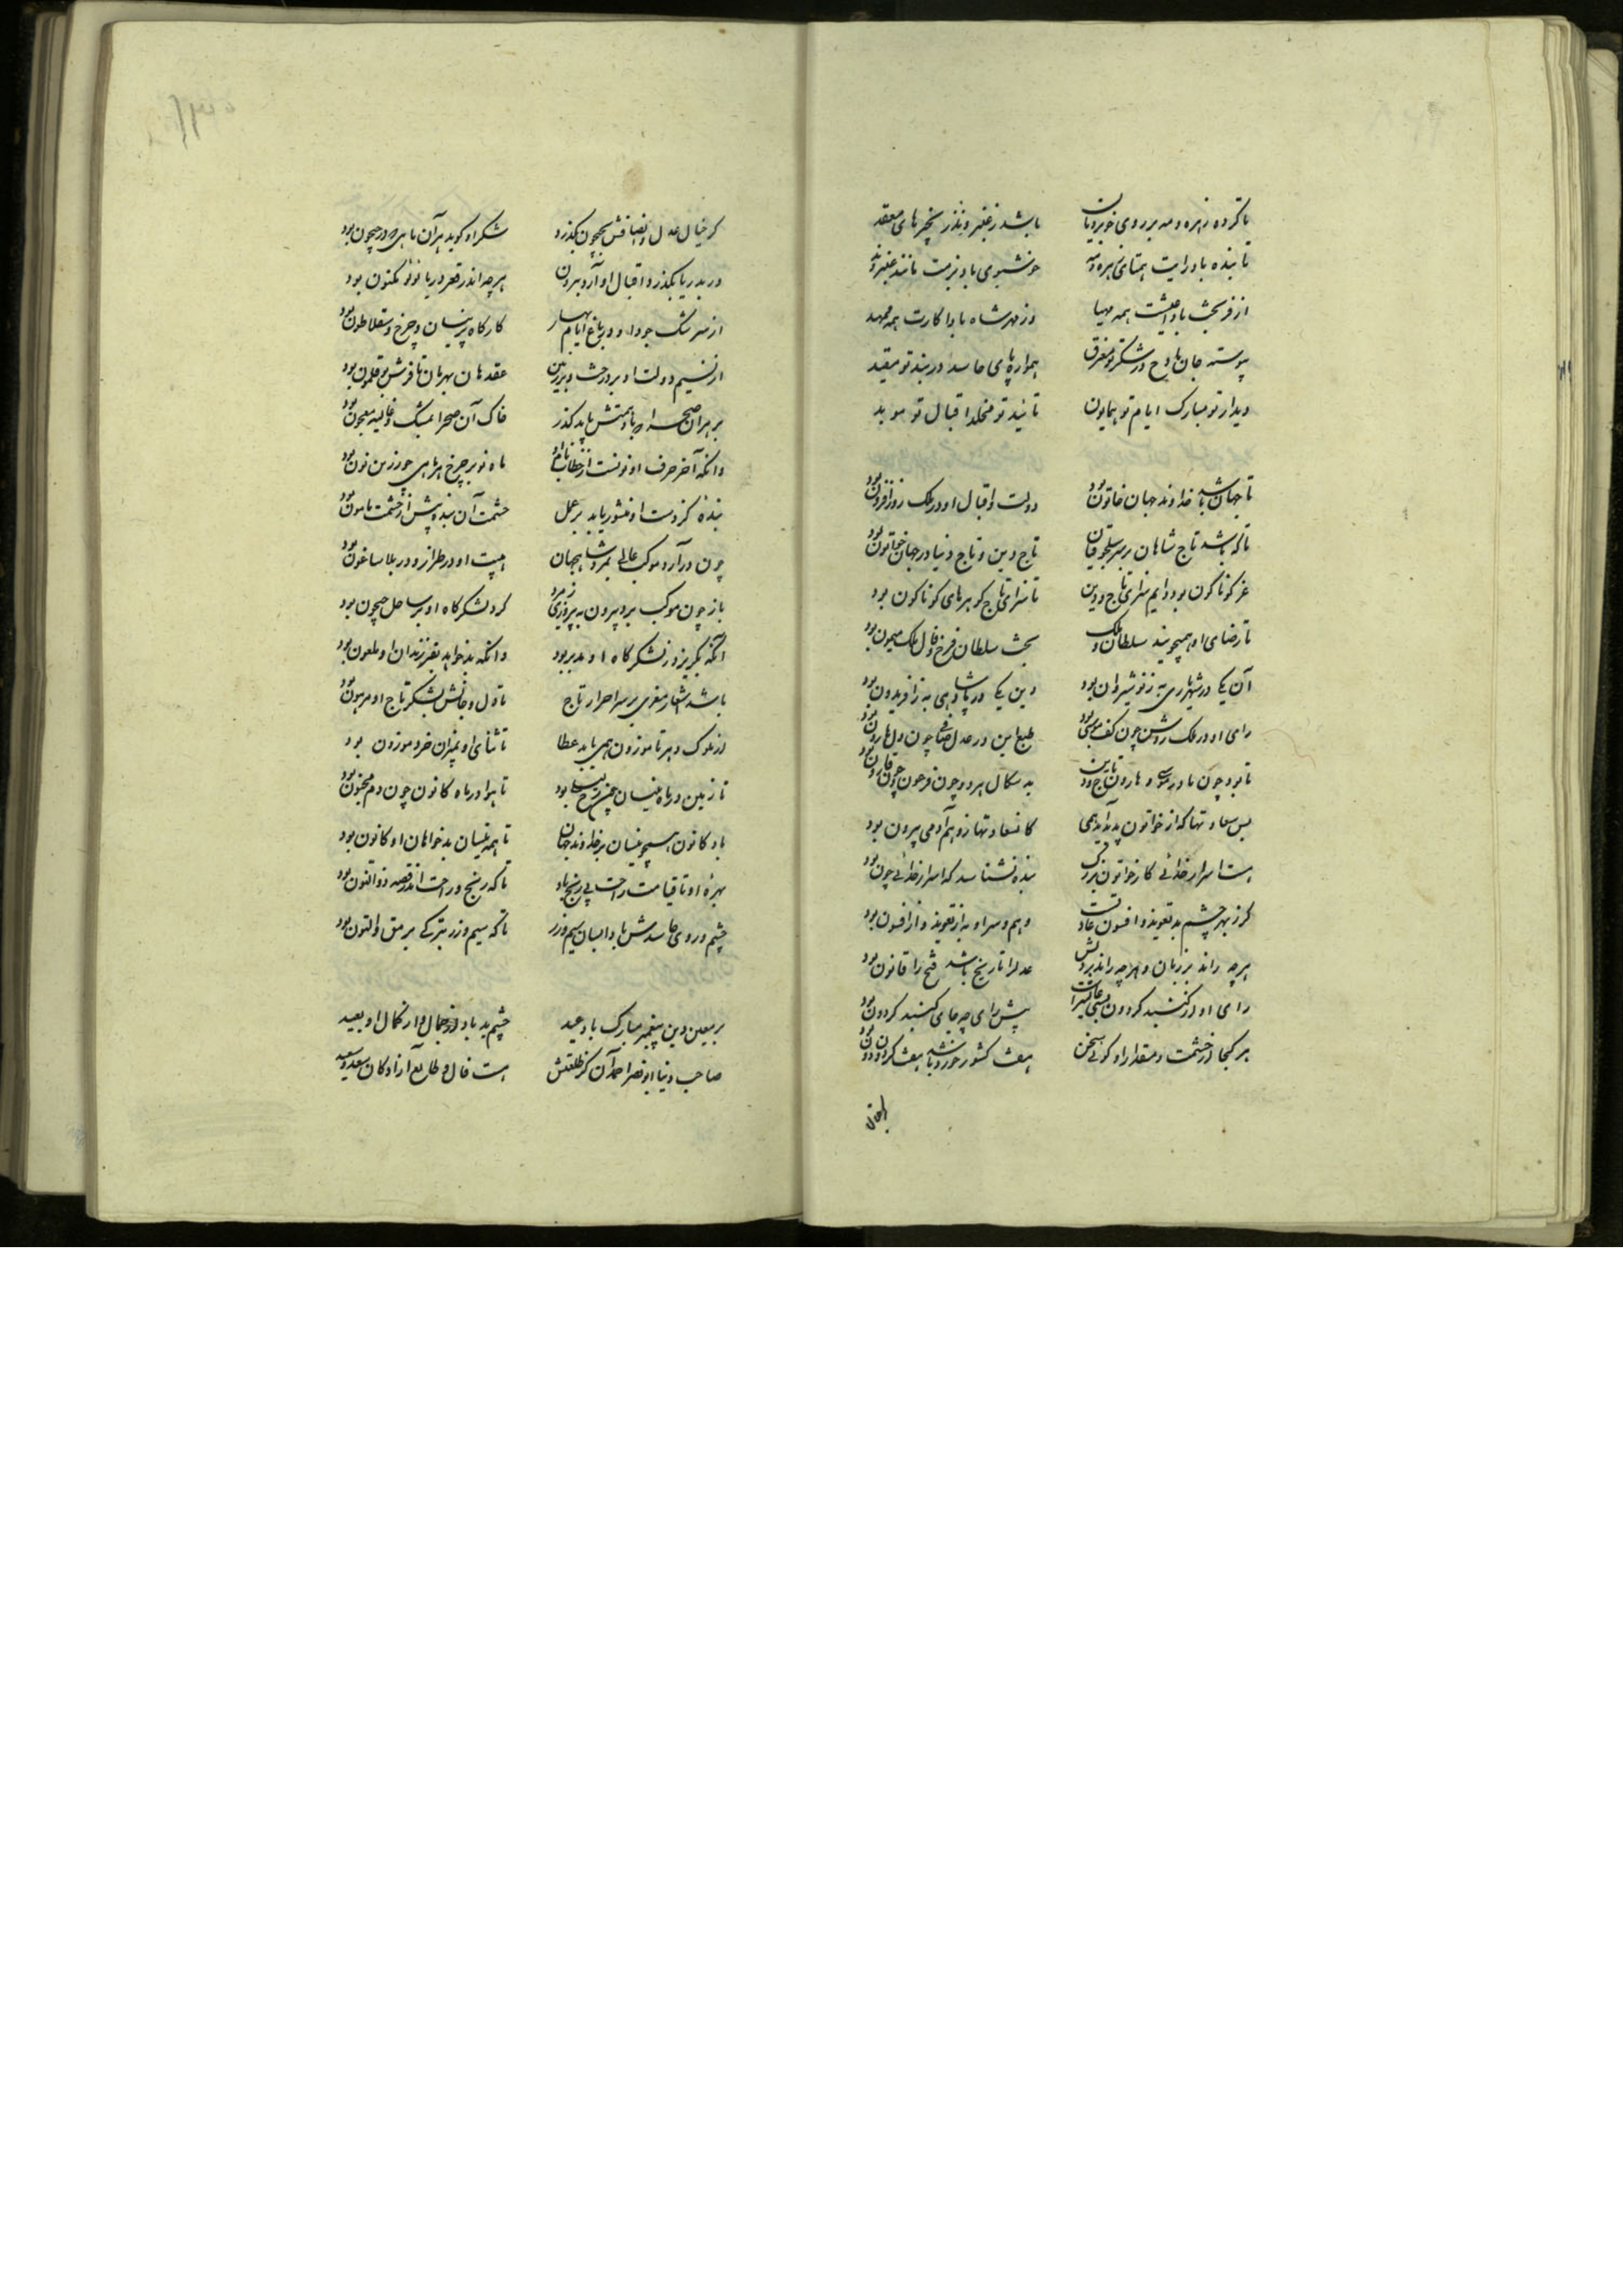 تا گرده زهره و مه بر روی خوبرویان باشد ز عنبر و ند زنجیرهای معقد
تابنده باد رایت همتای زهره و مه خوشبوی باد بزمت مانند عنبر و ند
از فر بخت بادا عیشت همه مهیا وز مهر شاه بادا کارت همه ممهد
پیوسته جان مادح در شکر تو مغرق همواره پای حاسد در بند تو مقید
دیدار تو مبارک ایام تو همایون تایید تو مخلد اقبال تو موید
تا جهان باشد خداوند جهان خاتون بود دولت و اقبال او در ملک روزافزون بود
تا که باشد تاج شاهان بر سر سلجوقیان تاج دین و تاج دنیا در جهان خاتون بود
عز کوناکون بود دایم سزای تاج دین تا سزای تاج کوهرهای کوناکون بود
تا رضای او همیجویند سلطان و ملک بخت سلطان فرخ و فال ملک میمون بود
آن یکی در شهریاری به ز نوشیروان بود وین یکی در پادشاهی به ز افریدون بود
رای او در ملک روشن چون کف موسی بود طبع این در عدل صافی چون دل هارون بود
تا بود چون مادر موسی و هارون تاج دین بدسکال هر دو چون فرعون و چون قارون بود
بس سعادتها که از خواتون پدید آید همی کان سعادتها ز وهم آدمی بیرون بود
هست اسرار خدائی کار خواتون بزرک بنده نشناسد که اسرار خدائی چون بود
کر ز بهر چشم بد تعویذ و افسون عادتست وهم و سر او به از تعویذ و از افسون بود
هرچه راند بر زبان و هرچه راند بر دلش عدل را تاریخ باشد فتح را قانون بود
رای او از کنبد کردون بسی عالیتر است پیش رای چه جای کنبد کردون بود
هر کجا از حشمت و مقدار او کوئی سخن هفت کشور خورد باشد هفت کردون دون بود
کر خیال عدل و انصافش بجیحون بکذرد شکر او کوید هر آن ماهی که در جیحون بود
ور بدریا بکذرد اقبال او آرد برون هرچه اندر قعر دریا لولو مکنون بود
از سرشک جود او در باغ ایام بهار کارکاه پرنیان و چرخ و سقلاطون بود
از نسیم دولت او بر درخت و بر زمین عقدهای بهرمان تا فرش بوقلمون بود
بر هر آن صحرا که باد همتش یابد کذر خاک آن صحرا بمشک و غالیه معجون بود
وانکه آخر حرف او نونست از خطاب نام او ماه نو بر چرخ هر ماهی چو زرین نون بود
بنده کز دست او منشور یابد بر عمل حشمت آن بنده بیش از حشمت مامون بود
چون درآرد موکب عالی بمرو شاهجهان هیبت او در طراز و در بلاساغون بود
باز چون موکب برد بیرون به پیروزی ز مرو کرد لشکرکاه او بر ساحل جیحون بود
آنکه بکریزد ز لشکرکاه او مدبر بود وانکه بد خواهد بفرزندان او ملعون بود
باشد اشعار معزی بر سر احرار تاج تا دل و جانش بشکر تاج او مرهون بود
از ملوک دهر تا موزون همی یابد عطا تا ثنای او بمیزان خرد موزون بود
تا زمین در ماه نیسان چون رخ لیلی بود تا هوا در ماه کانون چون دم مجنون بود
باد کانون همچو نیسان بر خداوند جهان تا همه نیسان بدخواهان او کانون بود
بهره او تا قیامت راحت بی رنج باد تا که رنج و راحت اندر قصه ذوالنون بود
چشم و روی حاسدش بادا بسان سیم و زر تا که سیم و زر بترکی یرمق و التون بود
بر معین دین پیغمبر مبارک باد عید چشم بد باد از جمال و از کمال او بعید
صاحب دنیا ابونصر احمد آن کز طلعتش هست فال و طالع آزادکان سعد و سعید